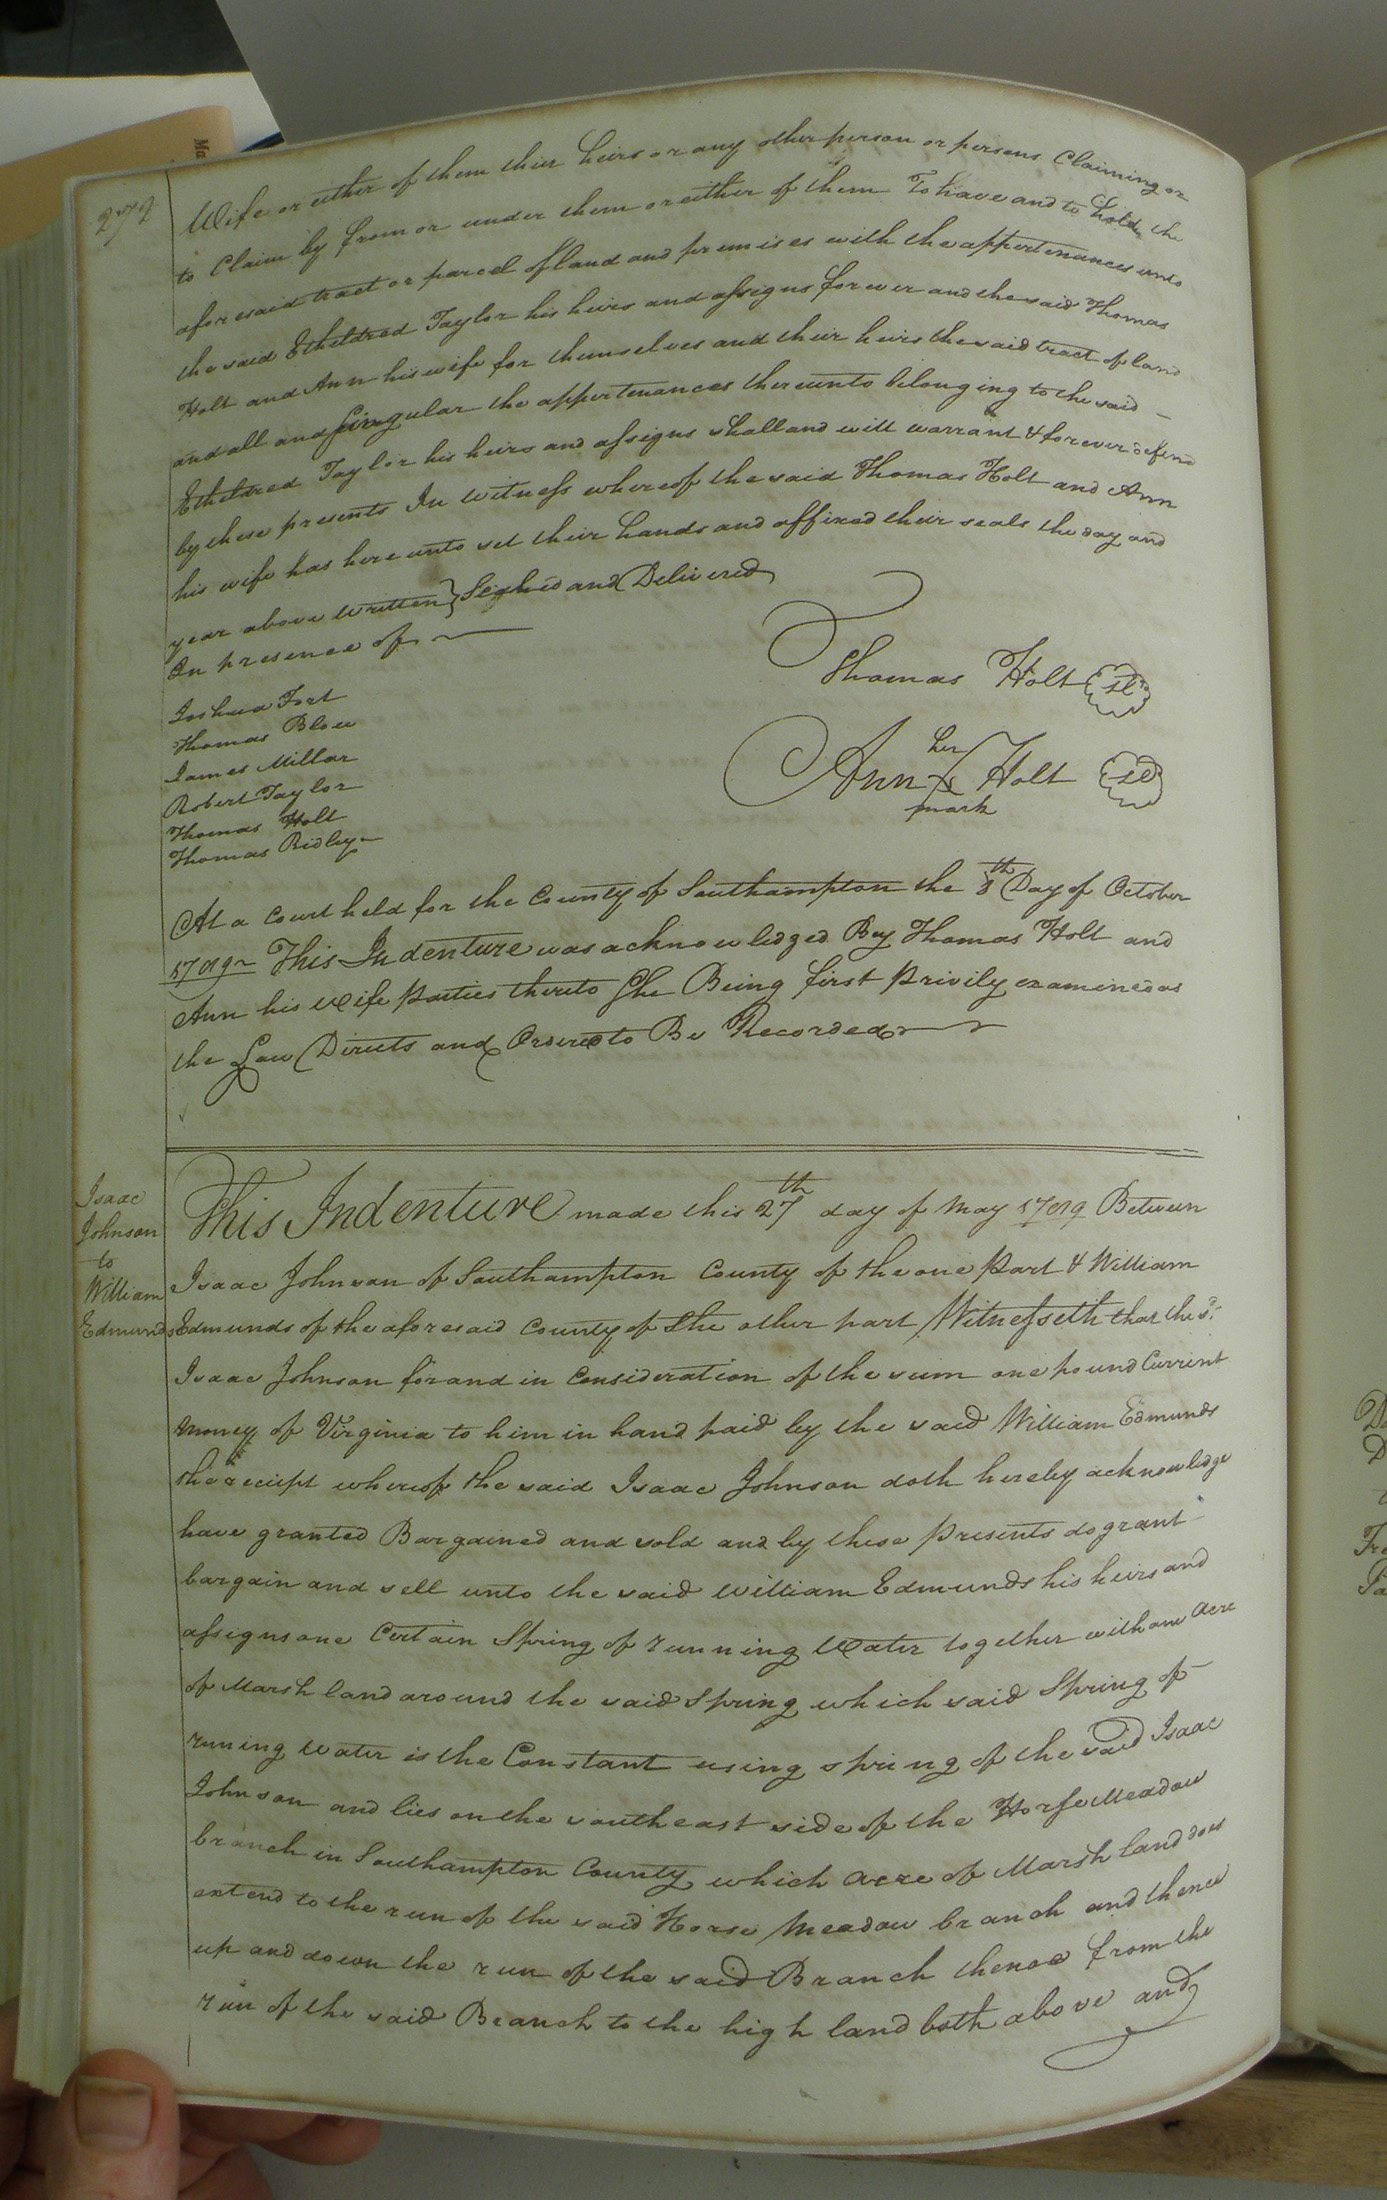 272
Wife or either of them their heirs or any other person or persons Claiming or
to Claim by from or under them or either of them To have and to hold the
aforesaid tract or parcel of land and premises with the appertenances unto
the said Etheldred Taylor his heirs and assigns forever and the said Thomas
Holt and Ann his wife for themselves and their heirs the said tract of land
and all and singular the appertenances thereunto belonging to the said
Etheldred Taylor his heirs and assigns shall and will warrant & forever defend
by these presents In witness whereof the said Thomas Holt and Ann
his wife has here unto set their hands and affixed their seals the day and
year above written } Signed and Delivered
In presence of
Joshua Fort
Thomas Blow
James Millar
Robert Taylor
Thomas Holt
Thomas Ridley
Thomas Holt
Ann her Holt
mark
At a Court held for the County of Southampton the 8th Day of October
This Indenture was acknowledged By Thomas Holt and
Ann his Wife Parties thereto She Being first Privily examined as
the Law Directs and Ordered to Be Recorded
Isaac
Johnson
to
William
Edmunds
This Indenture made this 27th day of May Between
Isaac Johnson of Southampton County of the one Part & William
Edmunds of the aforesaid County of the other part Witnesseth that the sd.
Isaac Johnson for and in Consideration of the sum one pound Current
money of Virginia to him in hand paid by the said William Edmunds
the reciept whereof the said Isaac Johnson doth hereby acknowledge
have granted Bargained and sold and by these Presents do grant
bargain and sell unto the said William Edmunds his heirs and
assigns one Certain Spring of running Water together with one acre
of Marsh land around the said Spring which said Spring of
runing Water is the Constant using spring of the said Isaac
Johnson and lies on the south east side of the Horse Meadow
branch in Southampton County which acre of Marsh land does
extend to the run of the said Horse Meadow branch and thence
up and down the run of the said Branch thence from the
run of the said Branch to the high land both above and